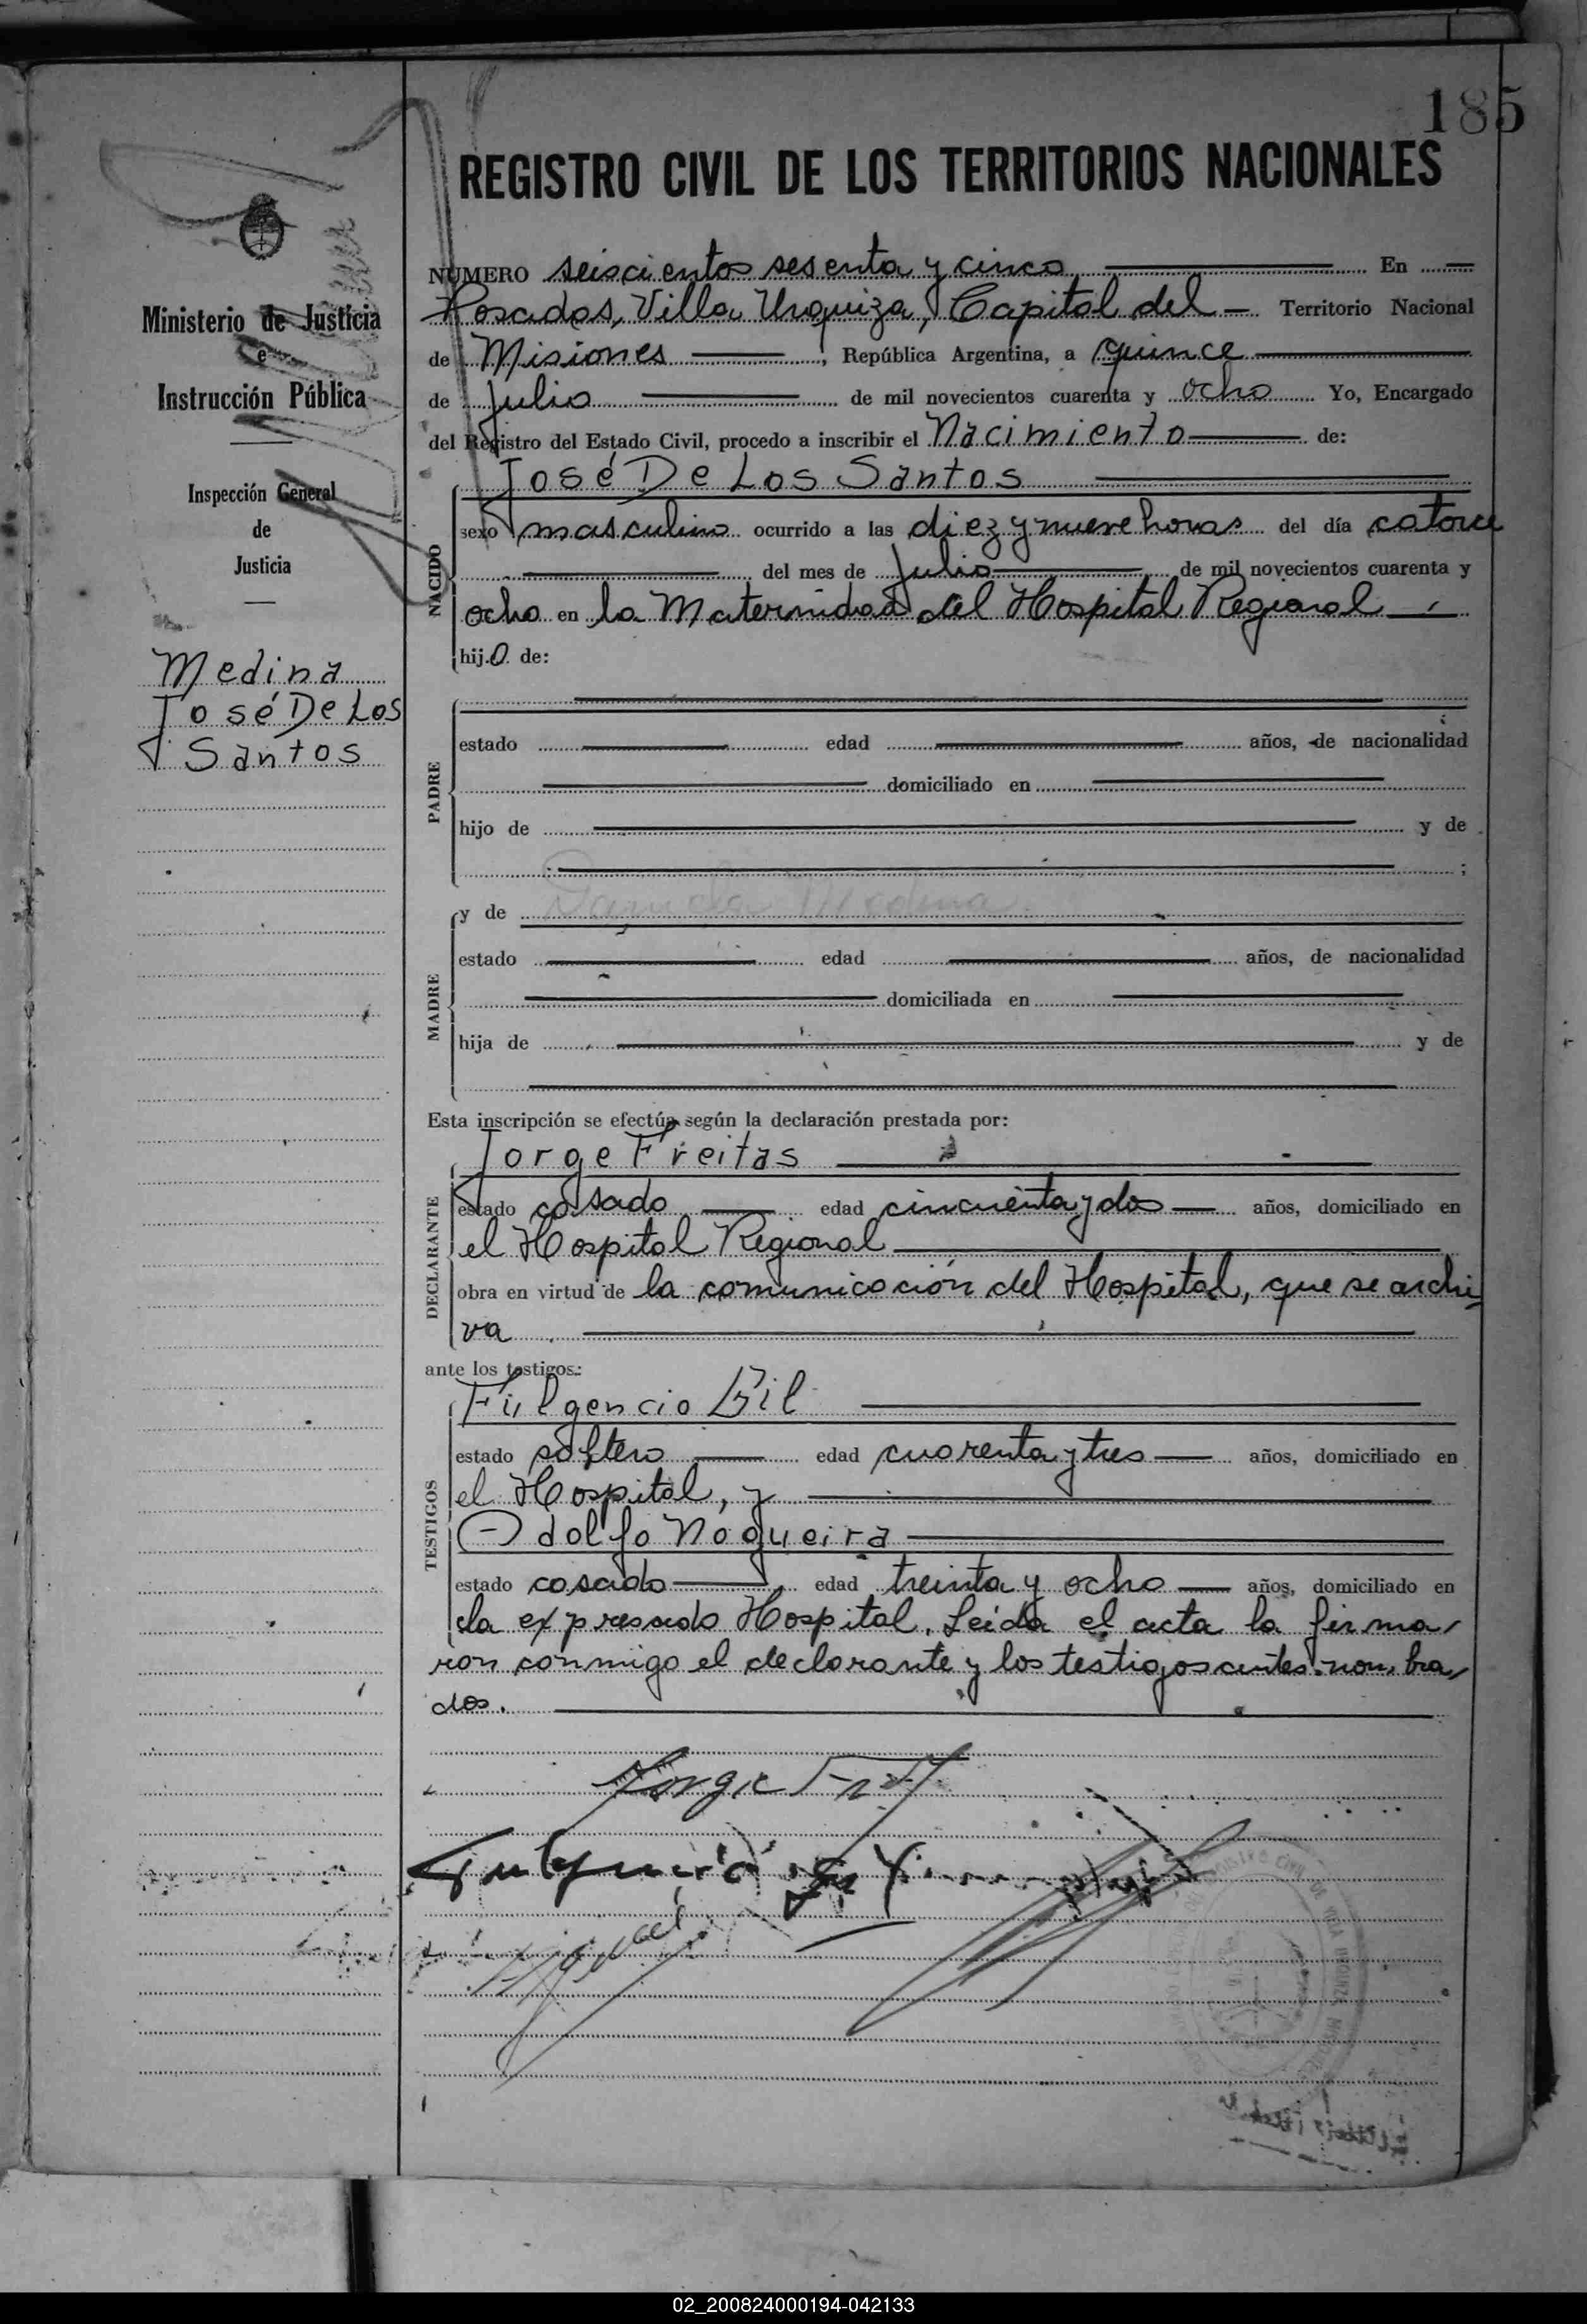 185
REGISTRO CIVIL DE LOS TERRITORIOS NACIONALES
Ministerio de Justicia
e
Instrucción Pública
Inspección General
de
Justicia
Medina
José De Los
Santos
NUMERO seiscientos sesenta y cinco En
Posadas, Villa Urquiza, Capital del Territorio Nacional
de Misiones, República Argentina, a quince
de julio de mil novecientos cuarenta y ocho Yo, Encargado
del Registro del Estado Civil, procedo a inscribir el Nacimiento de:
José De Los Santos
NACIDO
sexo masculino ocurrido a las diez y nueve horas del día catorce
del mes de julio de mil novecientos cuarenta y
ocho en la Maternidad del Hospital Regional
hijo de:
PADRE
estado edad años, de nacionalidad
domiciliado en
hijo de y de
;
MADRE
y de Medina
estado edad años, de nacionalidad
domiciliada en
hija de y de
Esta inscripción se efectúa según la declaración prestada por:
DECLARANTE
Jorge Freitas
estado casado edad cincuenta y dos años, domiciliado en
el Hospital Regional
obra en virtud de la comunicación del Hospital, que se archi-
va
ante los testigos:
TESTIGOS
Fulgencio Gil
estado soltero edad cuarenta y tres años, domiciliado en
el Hospital, y
Adolfo Nogueira
estado casado edad treinta y ocho años, domiciliado en
el expresado Hospital. Leida el acta la firma-
ron conmigo el declarante y los testigos antes nombra-
dos.
Jorge
02_200824000194-042133